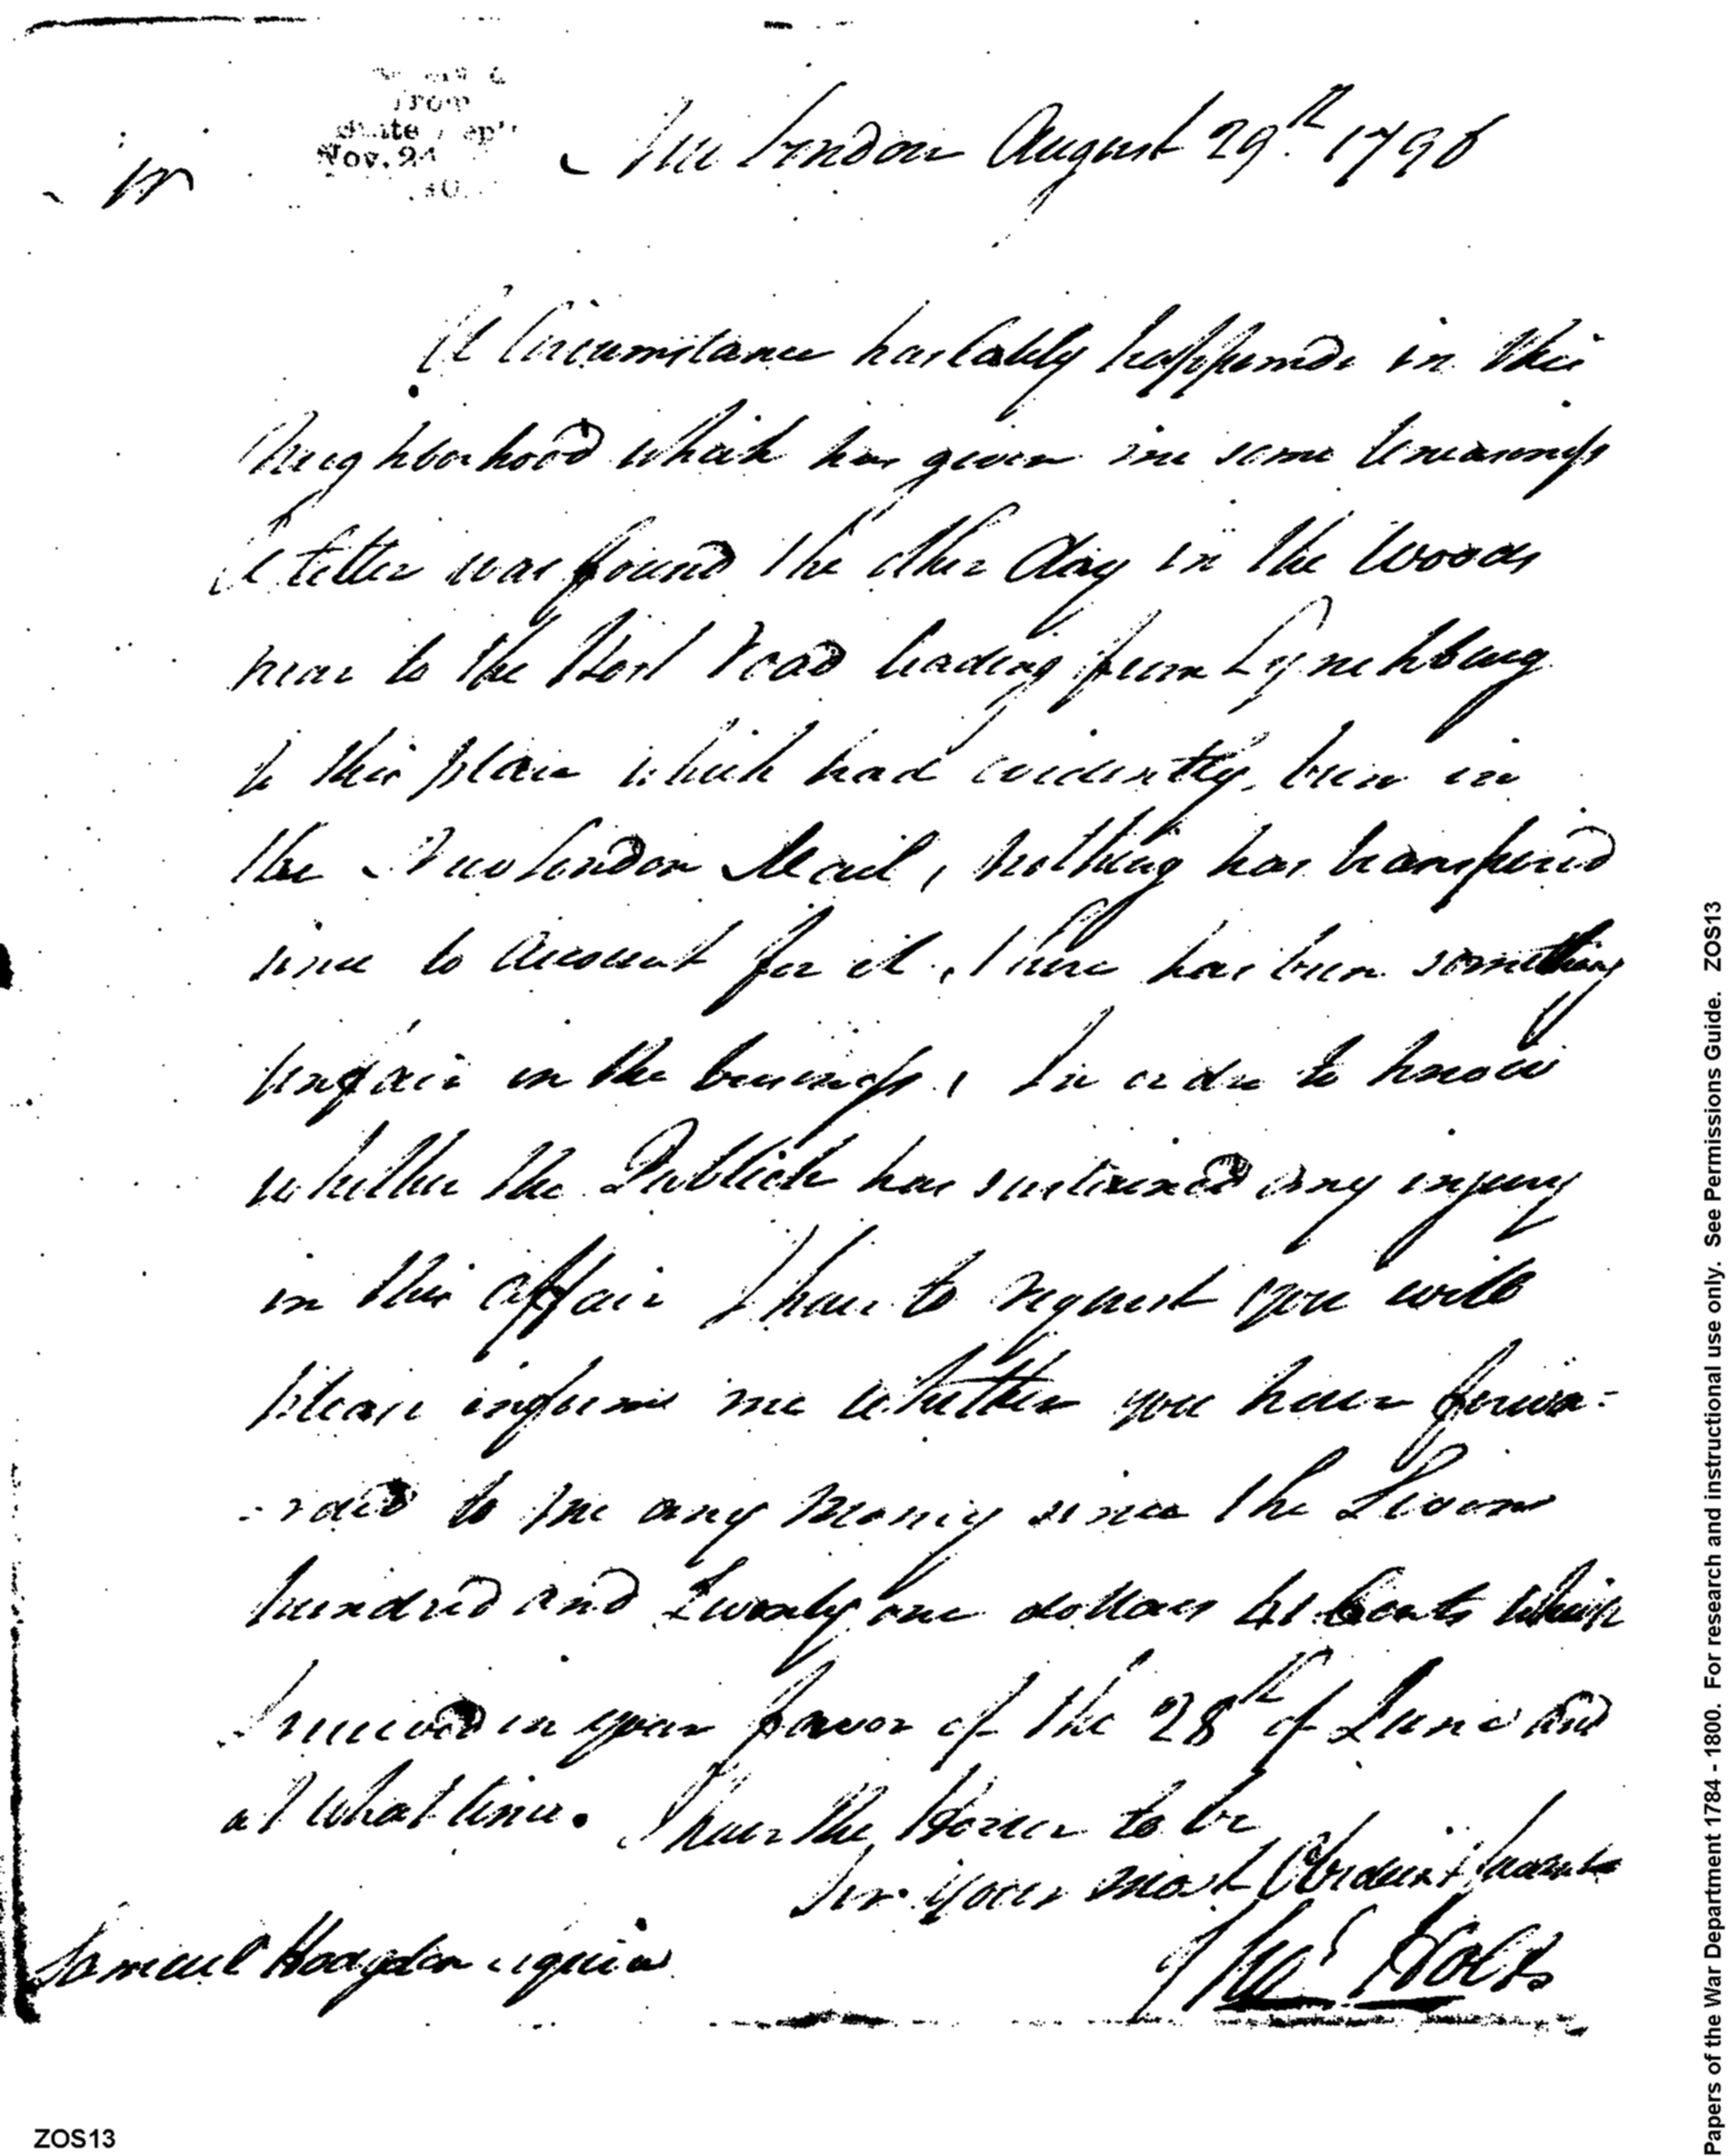 from
State Dep't
Nov. 24
New London August 29th 1796
Sir
A Circumstance has lately happened in this
Neighborhood which has given me some Uneasiness
A letter was found the other day in the Woods
near to the Post Road leading from Lynchburg
to this place which had evidently been in
the New London Mail, nothing has transpired
since to account for it, there has been something
unfair in the business, In order to know
whether the Publick has sustained any injury
in this affair I have to request you will
please inform me whether you have forwa-
-rded to me any money since the Seven
hundred and twenty one dollars 41 Cents which
I received in your favor of the 28th of June and
at what time. I have the Honor to be
Sir your most Obedient Servant
Samuel Hodgdon esquire
Thos Holt
ZOS13
Papers of the War Department 1784 - 1800. For research and instructional use only. See Permissions Guide. ZOS13